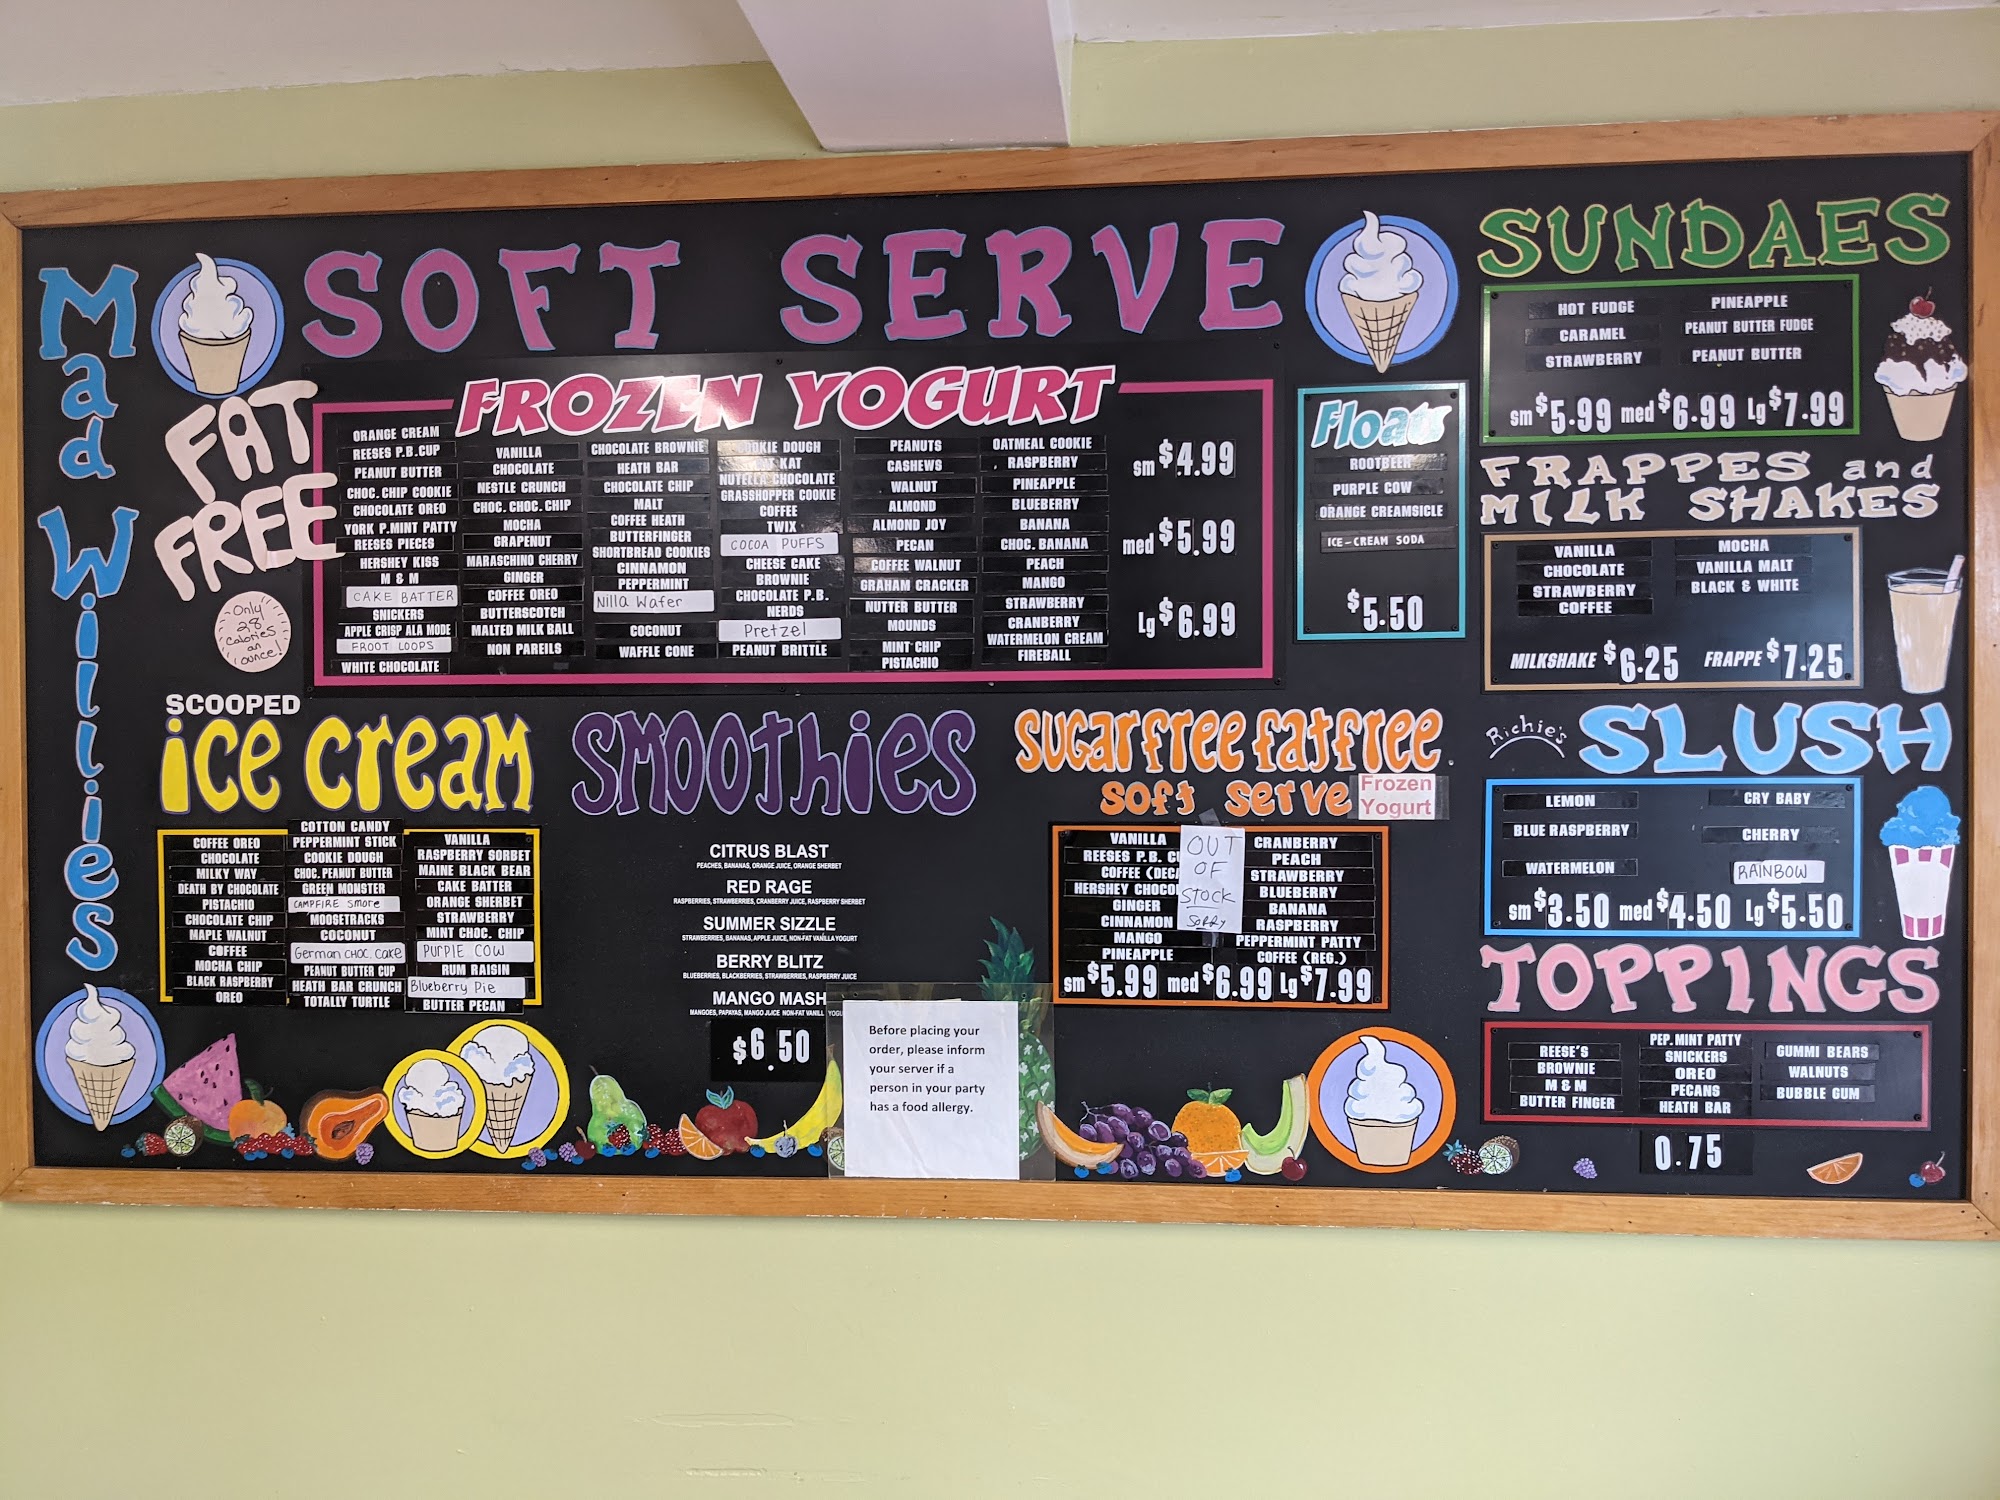 Mad Willies
SOFT SERVE
FAT
FREE
Only
28
calories
an
ounce!
FROZEN YOGURT
ORANGE CREAM
REESES P.B.CUP
PEANUT BUTTER
CHOC. CHIP COOKIE
CHOCOLATE OREO
YORK P.MINT PATTY
REESES PIECES
HERSHEY KISS
M & M
CAKE BATTER
SNICKERS
APPLE CRISP ALA MODE
FROOT LOOPS
WHITE CHOCOLATE
VANILLA
CHOCOLATE
NESTLE CRUNCH
CHOC. CHOC. CHIP
MOCHA
GRAPENUT
MARASCHINO CHERRY
GINGER
COFFEE OREO
BUTTERSCOTCH
MALTED MILK BALL
NON PAREILS
CHOCOLATE BROWNIE
HEATH BAR
CHOCOLATE CHIP
MALT
COFFEE HEATH
BUTTERFINGER
SHORTBREAD COOKIES
CINNAMON
PEPPERMINT
Nilla Wafer
COCONUT
WAFFLE CONE
COOKIE DOUGH
KAT
NUTELLA CHOCOLATE
GRASSHOPPER COOKIE
COFFEE
TWIX
COCOA PUFFS
CHEESE CAKE
BROWNIE
CHOCOLATE P.B.
NERDS
Pretzel
PEANUT BRITTLE
PEANUTS
CASHEWS
WALNUT
ALMOND
ALMOND JOY
PECAN
COFFEE WALNUT
GRAHAM CRACKER
NUTTER BUTTER
MOUNDS
MINT CHIP
PISTACHIO
OATMEAL COOKIE
RASPBERRY
PINEAPPLE
BLUEBERRY
BANANA
CHOC. BANANA
PEACH
MANGO
STRAWBERRY
CRANBERRY
WATERMELON CREAM
FIREBALL
sm $4.99
med $5.99
Lg $6.99
Floats
ROOTBEER
PURPLE COW
ORANGE CREAMSICLE
ICE-CREAM SODA
$5.50
SUNDAES
HOT FUDGE
CARAMEL
STRAWBERRY
PINEAPPLE
PEANUT BUTTER FUDGE
PEANUT BUTTER
sm $5.99 med $6.99 Lg $7.99
FRAPPES and
MILK SHAKES
VANILLA
CHOCOLATE
STRAWBERRY
COFFEE
MOCHA
VANILLA MALT
BLACK & WHITE
MILKSHAKE $6.25 FRAPPE $7.25
SCOOPED
ice cream
COFFEE OREO
CHOCOLATE
MILKY WAY
DEATH BY CHOCOLATE
PISTACHIO
CHOCOLATE CHIP
MAPLE WALNUT
COFFEE
MOCHA CHIP
BLACK RASPBERRY
OREO
COTTON CANDY
PEPPERMINT STICK
COOKIE DOUGH
CHOC. PEANUT BUTTER
GREEN MONSTER
CAMPFIRE Smore
MOOSETRACKS
COCONUT
German CHOC. Cake
PEANUT BUTTER CUP
HEATH BAR CRUNCH
TOTALLY TURTLE
VANILLA
RASPBERRY SORBET
MAINE BLACK BEAR
CAKE BATTER
ORANGE SHERBET
STRAWBERRY
MINT CHOC. CHIP
PURPLE COW
RUM RAISIN
Blueberry Pie
BUTTER PECAN
Smoothies
CITRUS BLAST
PEACHES, BANANAS, ORANGE JUICE, ORANGE SHERBET
RED RAGE
RASPBERRIES, STRAWBERRIES, CRANBERRY JUICE, RASPBERRY SHERBET
SUMMER SIZZLE
STRAWBERRIES, BANANAS, APPLE JUICE, NON-FAT VANILLA YOGURT
BERRY BLITZ
BLUEBERRIES, BLACKBERRIES, STRAWBERRIES, RASPBERRY JUICE
MANGO MASH
MANGOES, PAPAYAS, MANGO JUICE NON-FAT VANILL YOGU
$6.50
Before placing your
order, please inform
your server if a
person in your party
has a food allergy.
sugar free fat free
soft serve Frozen
Yogurt
VANILLA
REESES P.B.
COFFEE
HERSHEY
GINGER
CINNAMON
MANGO
PINEAPPLE
OUT
OF
STOCK
SORRY
CRANBERRY
PEACH
STRAWBERRY
BLUEBERRY
BANANA
RASPBERRY
PEPPERMINT PATTY
COFFEE (REG.)
sm $5.99 med $6.99 Lg $7.99
Richie's SLUSH
LEMON
BLUE RASPBERRY
WATERMELON
CRY BABY
CHERRY
RAINBOW
sm $3.50 med $4.50 Lg $5.50
TOPPINGS
REESE'S
BROWNIE
M & M
BUTTER FINGER
PEP.MINT PATTY
SNICKERS
OREO
PECANS
HEATH BAR
GUMMI BEARS
WALNUTS
BUBBLE GUM
0.75